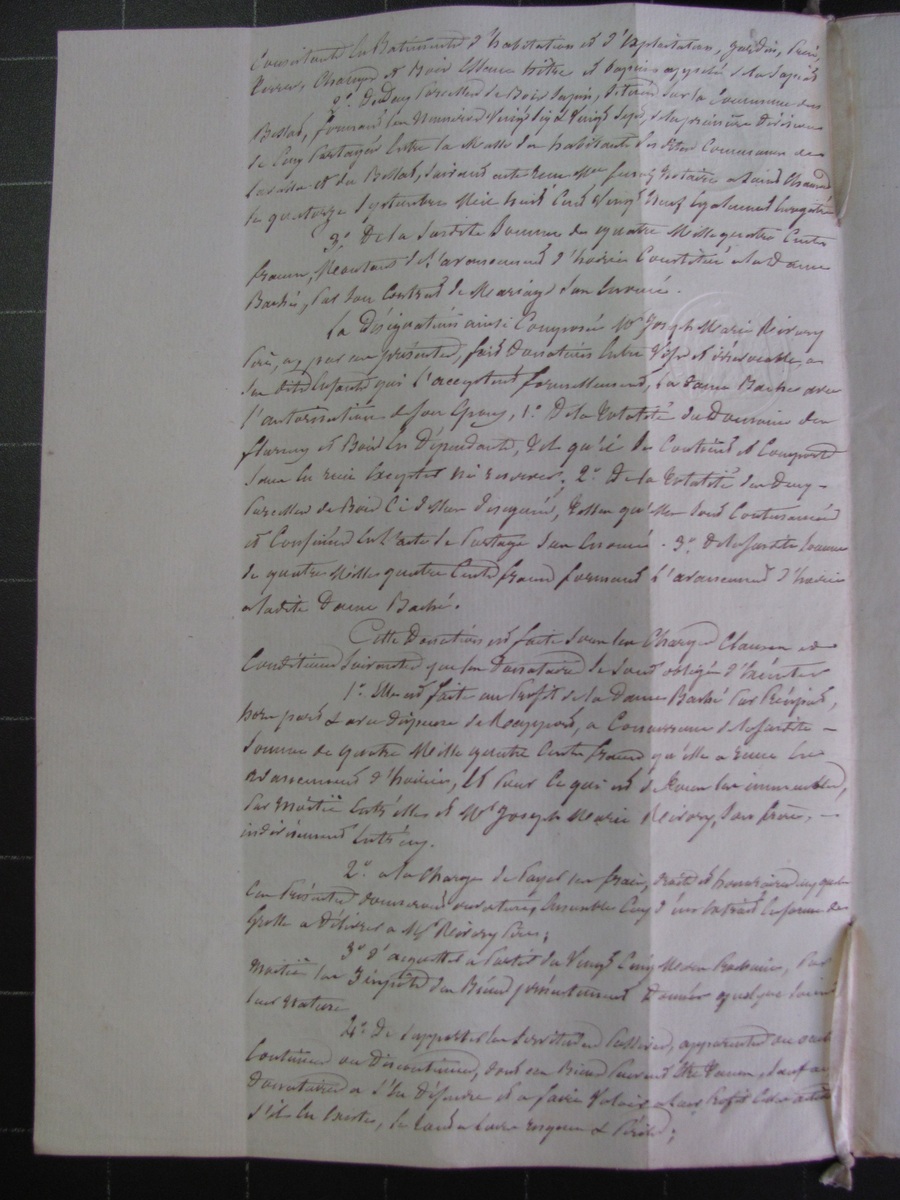 Consistant en Batiments d'habitation et d'Exploitation, jardin, Prés,
Terres, Champs et Bois Essence hêtre et Sapins appelé de la Sapins
2º. De Deux Parcelles de Bois Sapin, Situées sur la Commune des
Bessat, formant les Numéros Vingt Six et Vingt Sept, de la première Division
de Cinq Partages Entre la Masse des habitants des Commune de
et du Bessat, Suivant acte reçu Me notaire a Saint Chamond
le quatorze Septembre Mil huit Cent Vingt Neuf Egalement Enregistré
3º. De la Susdite Somme de quatre Mille quatre Cents
francs, Montant de l'avancement d'hoirie Constitué a la Dame
Baché, par Son Contrat de Mariage Sus Enoncé.
La Désignation ainsi Composée Mr Joseph Marie Rivory
Père, a, par ces présentes, fait Donation Entre Vifs et irrévocable, a
Ses dits Enfants qui l'acceptent formellement, la Dame Baché avec
l'autorisation de Son Epoux, 1º. De la Totalité du Domaine des
et Bois En Dépendants, Tel qu'il Se Contient et Comporte
Sans En rien Excepter ni reserver; 2º. De la Totalité des Deux
Parcelles de Bois Ci dessus designées, Telles qu'elles Sont Contenancées
et Confinées En l'acte de Partage Sus Enoncé. 3º. De la Susdite Somme
de quatre Mille quatre Cents francs formant l'avancement d'hoirie
a ladite Dame Baché.
Cette Donation est faite Sous les Charges Clauses et
Conditions Suivantes que les Donataires Se Sont obligés d'Exécuter
1º. Elle est faite au Profit de la Dame Baché Par Préciput,
hors part et avec dispense de Rapport, a Concurrence de la Susdite
Somme de quatre Mille quatre Cents francs qu'elle a Reçue En
avancement d'hoirie, Et pour Ce qui est de tous les immeubles,
Par Moitié Entr'elle et Mr Joseph Marie Rivory, Son frère,
indivisément Entr'eux.
2º. a la Charge de Payer les frais, droits et honoraires auxquels
Ces Présentes donneront ouverture, Ensemble Ceux d'un Extrait En forme de
Grosse a Délivrer a Mr Rivory Père;
3º. d'acquitter a Partir du Vingt Cinq Mars Prochain, Par
Moitié les Impôts des Biens présentement Donnés quelque Soient
leur Nature
4º. De Supporter les Servitudes Passives, apparentes ou occultes
Continues ou Discontinues, dont Ces Biens Peuvent Etre Tenus, Sauf aux
Donataires a S'en Défendre et a faire Valoir a leur Profit Celles actives
S'il En Existe, le tout a leurs risques et Périls;